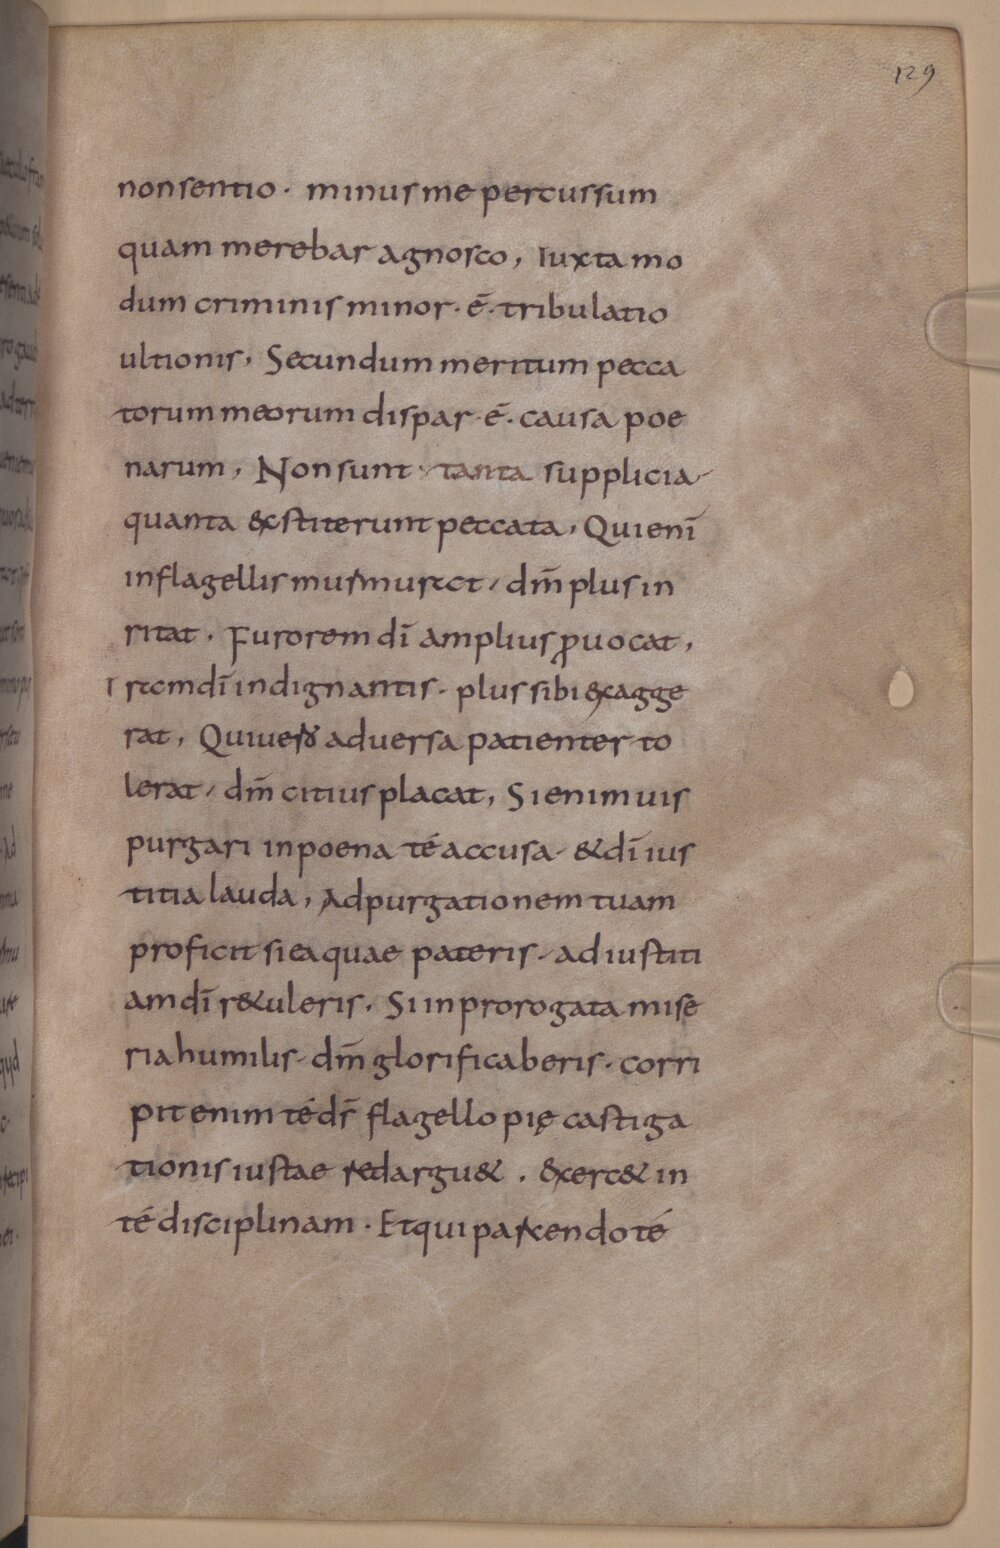 129
non sentio · minus me percussum
quam merebar agnosco, Iuxta mo
dum criminis minor · ē · tribulatio
ultionis, Secundum meritum pecca
torum meorum dispar · ē · causa poe
narum, Non sunt tanta supplicia
quanta &stiterunt peccata, Qui enī
in flagellis murmurat, dm̄ plus in
ritat, Furorem dī amplius ꝓuocat,
I ram dī indignantis · plus sibi &xagge
rat, Qui uero adversa patienter to
lerat, dm̄ citius placat, Si enim uis
purgari in poena té accusa & dī ius
titia lauda, Ad purgationem tuam
proficit si ea quae pateris · ad iustiti
am dī r&uleris, Si in prorogata mise
ria humilis · dm̄ glorificaberis · corri
pit enim té ds̄ flagello pię castiga
tionis iustae redargu& · &xerc& in
té disciplinam · Et qui parcendo té